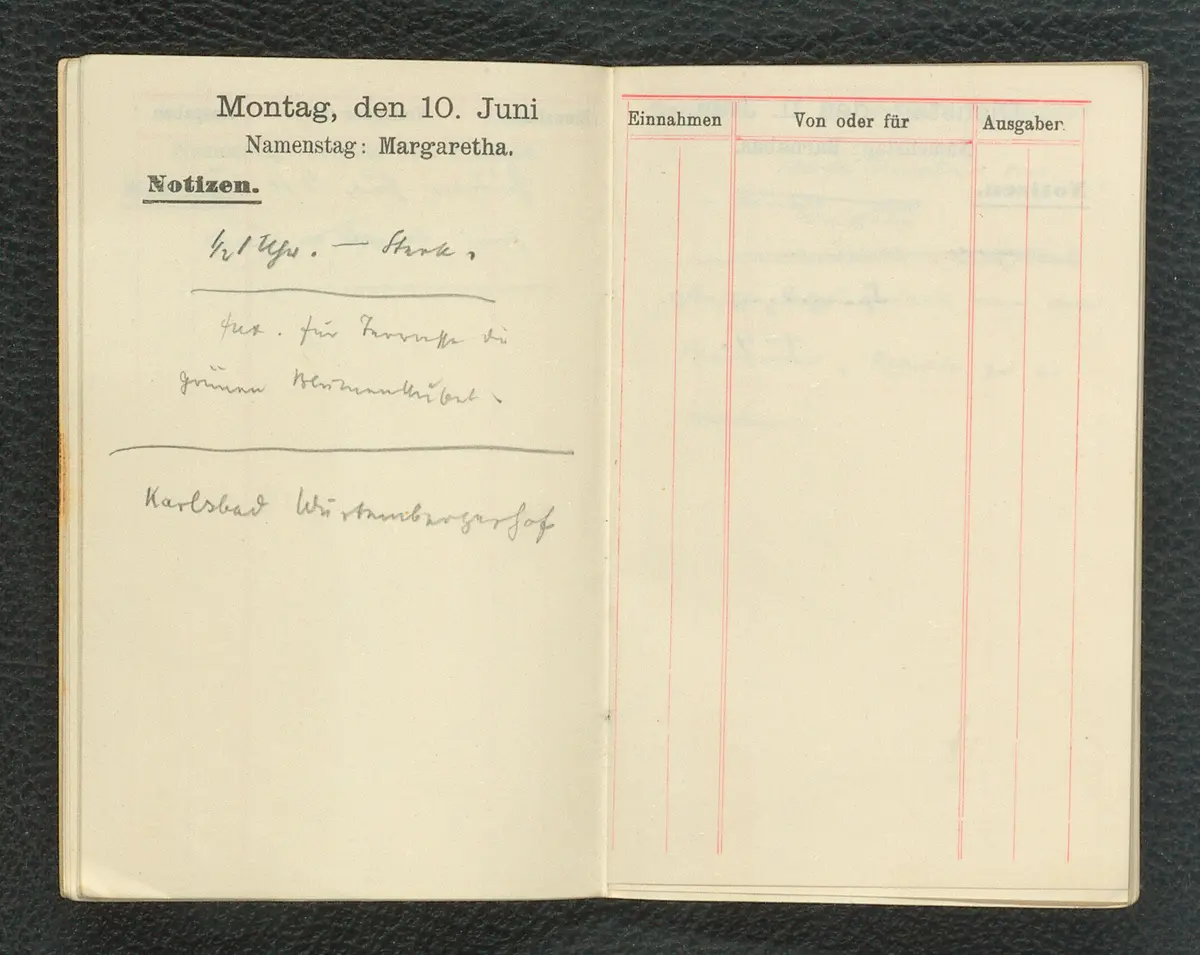 Montag, den 10. Juni
Namenstag: Margaretha.
Notizen.
½1 Uhr. — Sterk.
für Terrasse die
grünen Blumenkübel.
Karlsbad Würtembergerhof
Einnahmen
Von oder für
Ausgaben